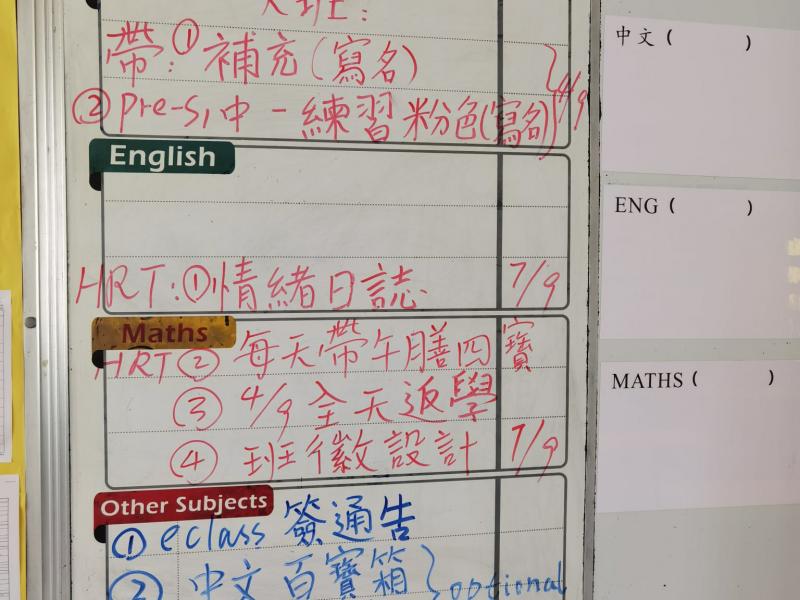 大班:
帶:① 補充(寫名)
② pre-S1中-練習 粉色(寫名) 4/9
English
HRT:①情緒日誌. 7/9
Maths
HRT② 每天帶午膳四寶
③ 4/9 全天返學
④ 班徽設計 7/9
Other Subjects
① eclass 簽通告
② 中文百寶箱 } optional
中文 ( )
ENG ( )
MATHS ( )